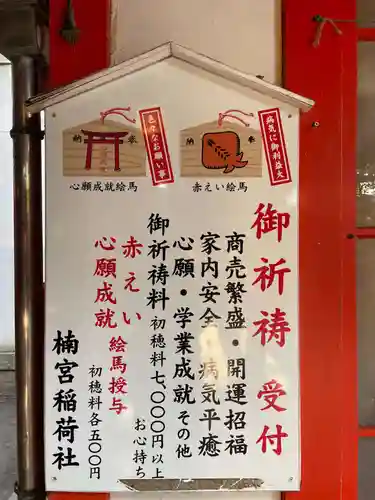 病気に御利益大
色々なお願い事
奉
納
奉
納
赤えい絵馬
心願成就絵馬
御祈祷受付
商売繁盛・開運招福
家内安全・病気平癒
心願・学業成就その他
御祈祷料初穂料七、〇〇〇円以上
お心持ち
赤えい
心願成就
絵馬授与
初穂料各五〇〇円
楠宮稲荷社